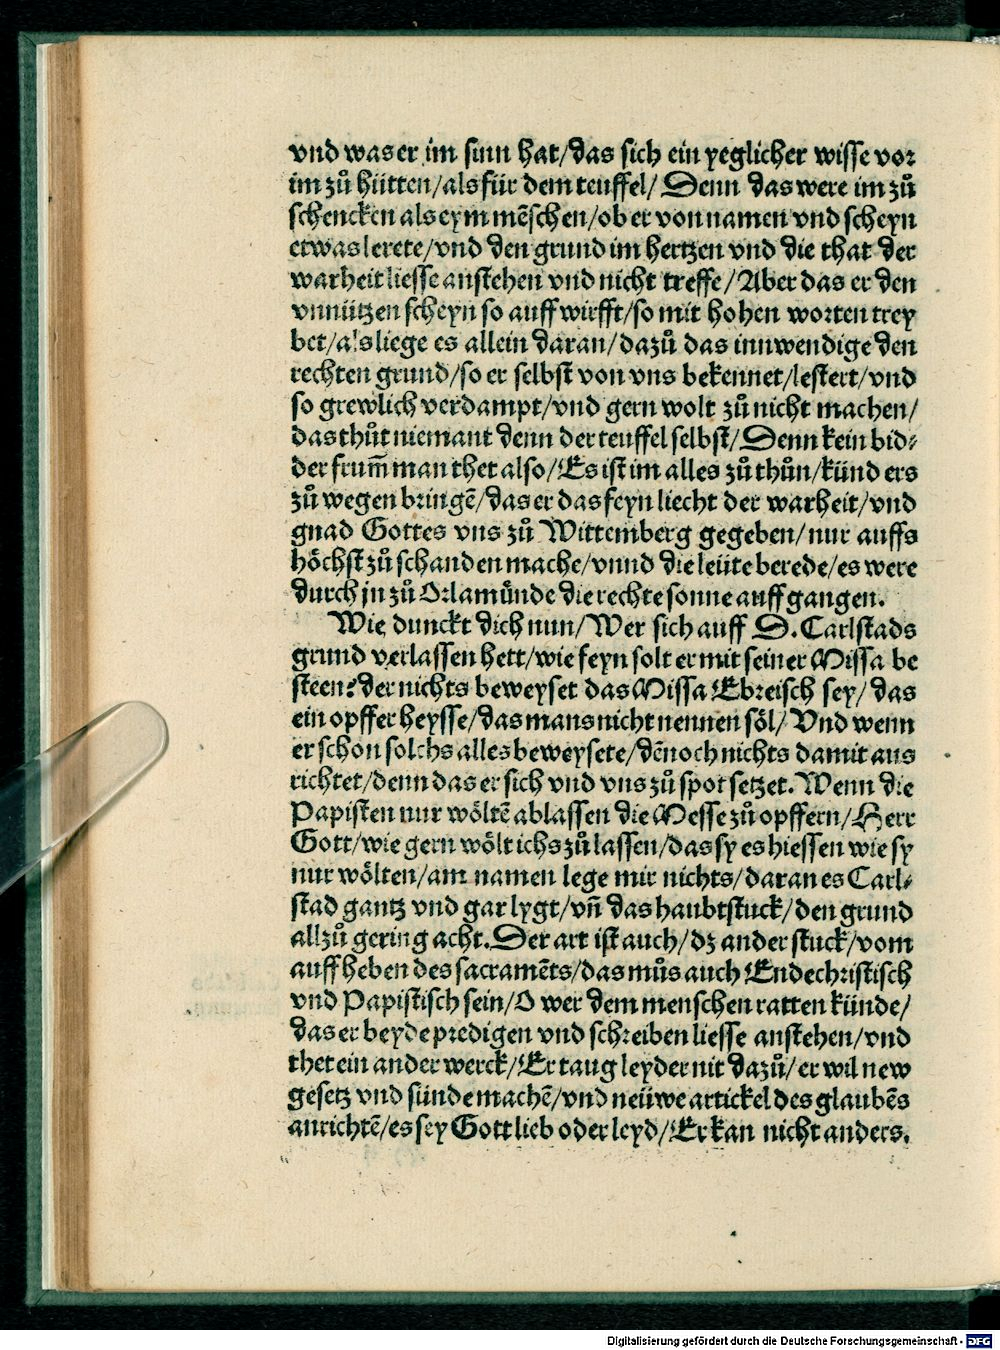 vnd was er im sinn hat/das sich ein yeglicher wisse vor
im zů hütten/als für dem teuffel/ Denn das were im zů
schencken als eym mẽschen/ob er von namen vnd scheyn
etwas lerete/vnd den grund im hertzen vnd die that der
warheit liesse anstehen vnd nicht treffe/Aber das er den
vnnützen scheyn so auff wirfft/so mit hohen worten trey
bet/als liege es allein daran/dazů das innwendige den
rechten grund/so er selbst von vns bekennet/lestert/vnd
so grewlich verdampt/vnd gern wolt zů nicht machen/
das thůt niemant denn der teuffel selbst/Denn kein bid⸗
der frum̃ man thet also/Es ist im alles zů thůn/künd ers
zů wegen bringẽ/das er das feyn liecht der warheit/vnd
gnad Gottes vns zů Wittemberg gegeben/nur auffs
höchst zů schanden mache/vnnd die leüte berede/es were
durch jn zů Orlamünde die rechte sonne auff gangen.
Wie dunckt dich nun/Wer sich auff D. Carlstads
grund verlassen hett/wie feyn solt er mit seiner Missa be
steen? der nichts beweyset das Missa Ebreisch sey/das
ein opffer heysse/das mans nicht nennen söl/ Vnd wenn
er schon solchs alles beweysete/dẽnoch nichts damit aus
richtet/denn das er sich vnd vns zů spot setzet. Wenn die
Papisten nur wöltẽ ablassen die Messe zů opffern/Herr
Gott/wie gern wölt ichs zů lassen/das sy es hiessen wie sy
nur wölten/am namen lege mir nichts/daran es Carl⸗
stad gantz vnd gar lygt/vñ das haubtstuck/den grund
allzů gering acht. Der art ist auch/dz ander stuck/vom
auff heben des sacramẽts/das můs auch Endechristisch
vnd Papistisch sein/O wer dem menschen ratten künde/
das er beyde predigen vnd schreiben liesse anstehen/vnd
thet ein ander werck/Er taug leyder nit dazů/er wil new
gesetz vnd sünde machẽ/vnd neüwe artickel des glaubẽs
anrichtẽ/es sey Gott lieb oder leyd/Er kan nicht anders.
Digitalisierung gefördert durch die Deutsche Forschungsgemeinschaft - DFG